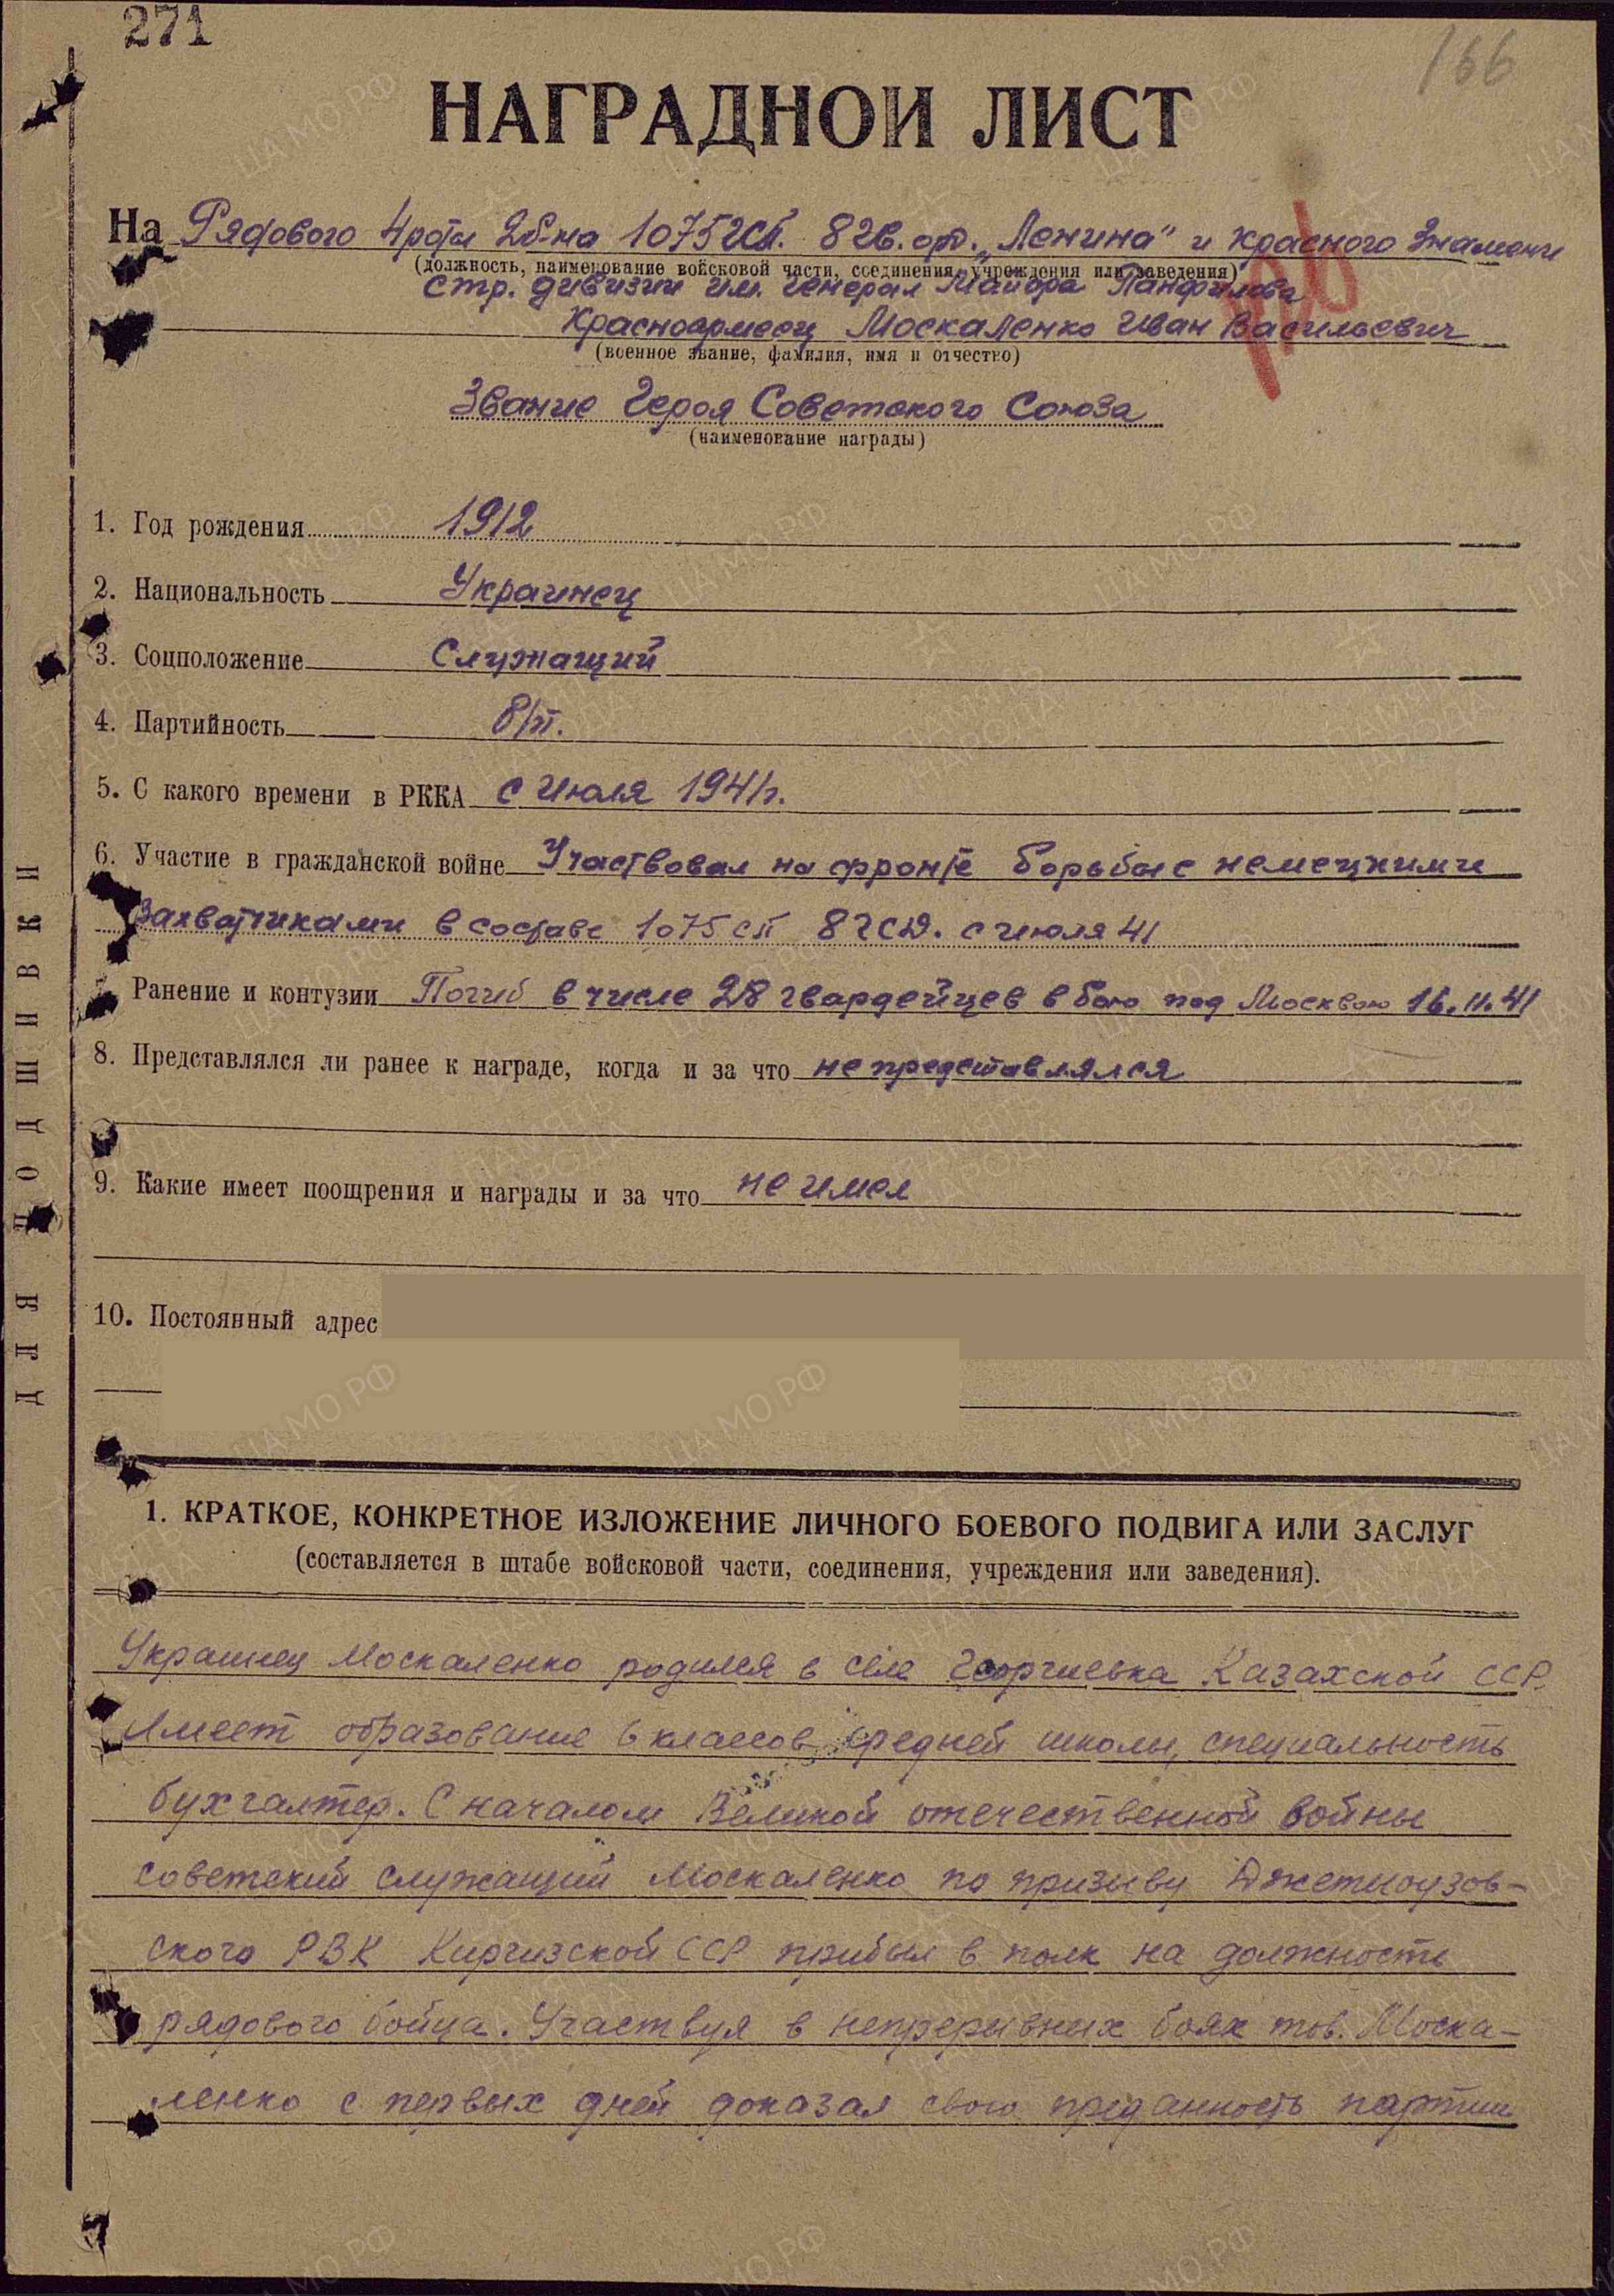 271
166
НАГРАДНОЙ ЛИСТ
На Рядового 4 роты 2 б-на 1075 гсп. 8 гв. орд. „Ленина" и Красного Знамени
(должность, наименование войсковой части, соединения, учреждения или заведения)
стр. дивизии им. генерал Майора Панфилова
Красноармеец Москаленко Иван Васильевич
(военное звание, фамилия, имя и отчество)
Звание Героя Советского Союза
(наименование награды)
1. Год рождения 1912
2. Национальность Украинец
3. Соцположение Служащий
4. Партийность б/п.
5. С какого времени в РККА с июля 1941г.
6. Участие в гражданской войне Участвовал на фронте борьбы с немецкими
захватчиками в составе 1075 сп 8 гсд. с июля 41
Ранение и контузии Погиб в числе 28 гвардейцев в бою под Москвою 16.11.41
8. Представлялся ли ранее к награде, когда и за что не представлялся
9. Какие имеет поощрения и награды и за что не имел
10. Постоянный адрес
1. КРАТКОЕ, КОНКРЕТНОЕ ИЗЛОЖЕНИЕ ЛИЧНОГО БОЕВОГО ПОДВИГА ИЛИ ЗАСЛУГ
(составляется в штабе войсковой части, соединения, учреждения или заведения).
Украинец Москаленко родился в селе Георгиевка Казахской ССР.
Имеет образование 6 классов средней школы, специальность
бухгалтер. С началом Великой отечественной войны
советский служащий Москаленко по призыву Джетиогузов-
ского РВК Киргизской ССР прибыл в полк на должность
рядового бойца. Участвуя в непрерывных боях тов. Моска-
ленко с первых дней доказал свою преданность партии
ДЛЯ ПОДШИВКИ